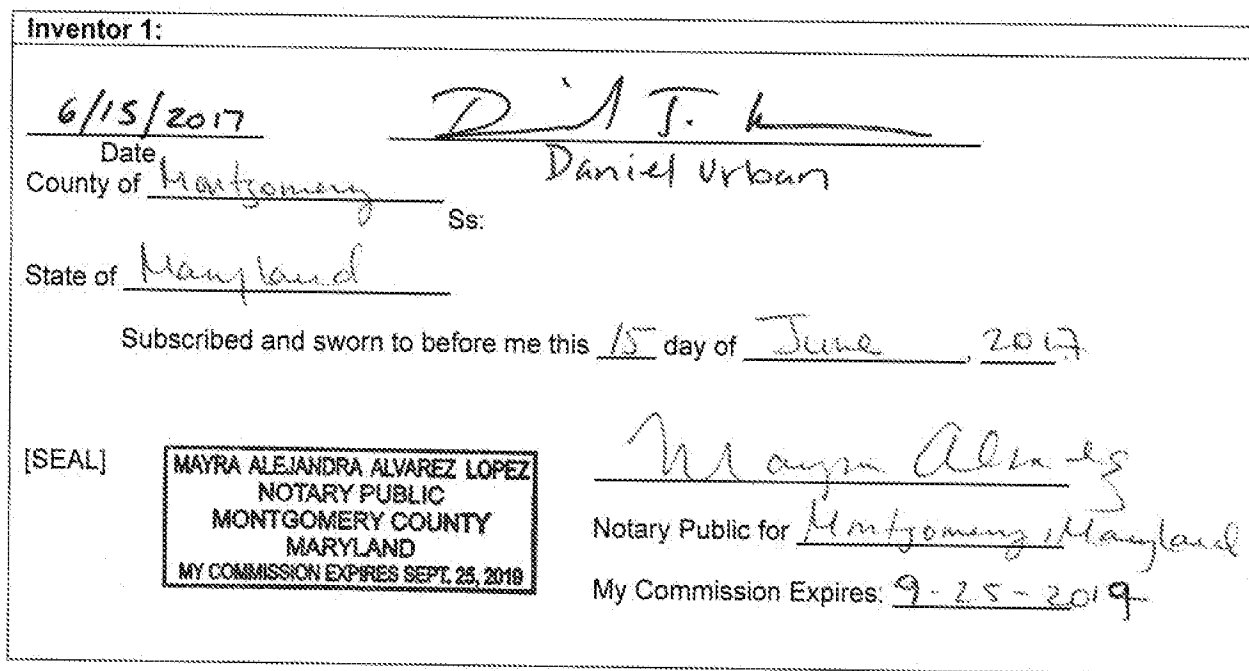 Inventor 1:
6/15/2017
Daniel J. U
Date
Daniel Urban
County of Montgomery
Ss:
State of Maryland
Subscribed and sworn to before me this 15 day of June, 2017
[SEAL]
MAYRA ALEJANDRA ALVAREZ LOPEZ
NOTARY PUBLIC
MONTGOMERY COUNTY
MARYLAND
MY COMMISSION EXPIRES SEPT. 25, 2019
Mayra Alvarez
Notary Public for Montgomery, Maryland
My Commission Expires: 9-25-2019